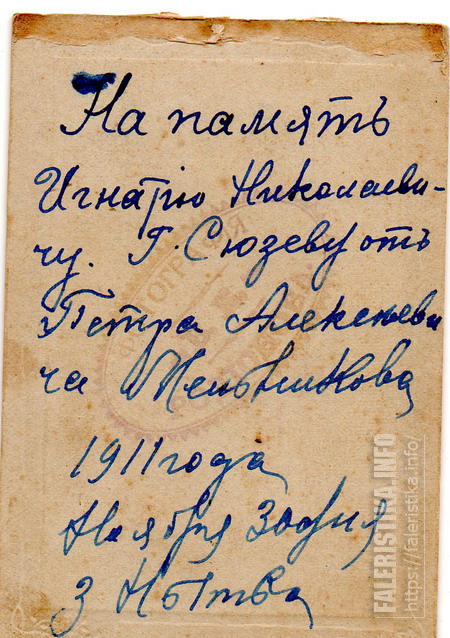 На память
Игнатію Николаеви-
чу. Г. Сюзеву отъ
Петра Алексѣеви
ча Мельникова
1911 года
Ноября 30 дня
З Нытва
ФОТОГРАФИЯ
FALERISTIKA.INFO
https://faleristika.info